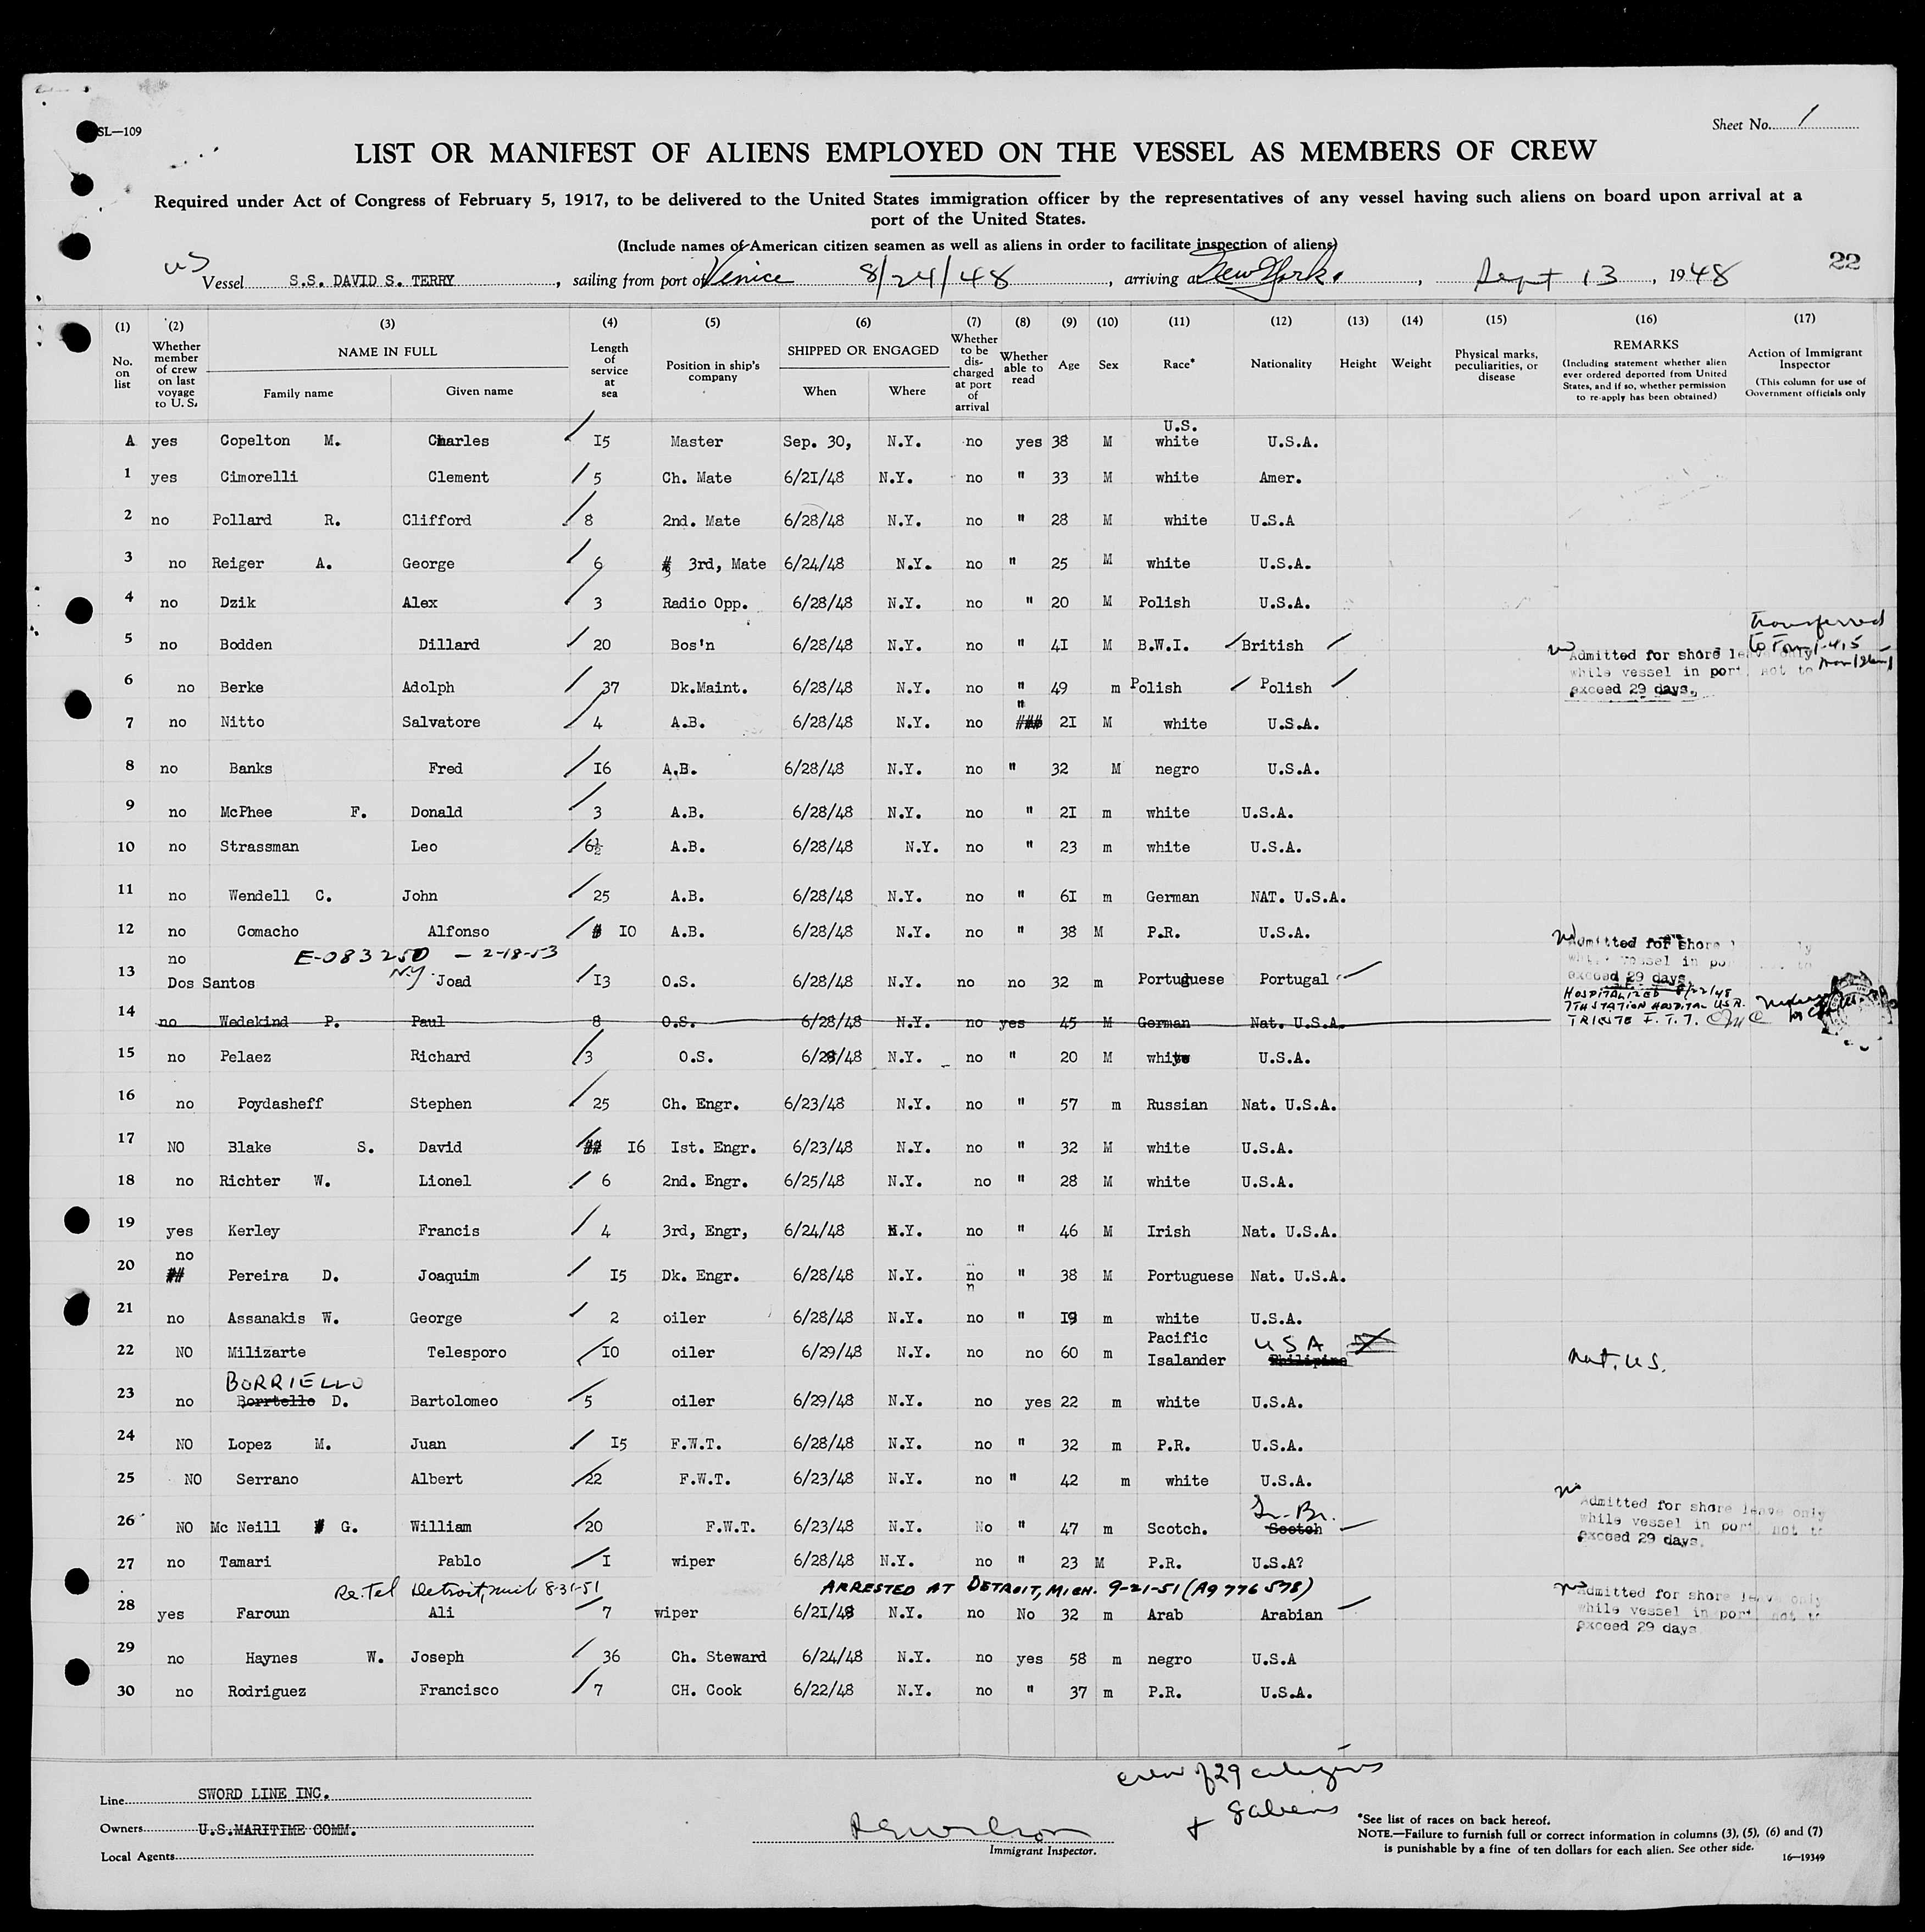 SL—109
Sheet No. 1
LIST OR MANIFEST OF ALIENS EMPLOYED ON THE VESSEL AS MEMBERS OF CREW
Required under Act of Congress of February 5, 1917, to be delivered to the United States immigration officer by the representatives of any vessel having such aliens on board upon arrival at a
port of the United States.
(Include names of American citizen seamen as well as aliens in order to facilitate inspection of aliens)
22
US
Vessel S.S. DAVID S. TERRY, sailing from port of Venice 8/24/48, arriving at New York, Sept 13, 1948
(1) (2) (3) (4) (5) (6) (7) (8) (9) (10) (11) (12) (13) (14) (15) (16) (17)
No. on list
Whether member of crew on last voyage to U. S.
NAME IN FULL
Family name Given name
Length of service at sea
Position in ship's company
SHIPPED OR ENGAGED
When Where
Whether to be discharged at port of arrival
Whether able to read
Age
Sex
Race*
Nationality
Height
Weight
Physical marks, peculiarities, or disease
REMARKS
(Including statement whether alien ever ordered deported from United States, and if so, whether permission to re-apply has been obtained)
Action of Immigrant Inspector
(This column for use of Government officials only
A yes Copelton M. Charles 15 Master Sep. 30, N.Y. no yes 38 M U.S. white U.S.A.
1 yes Cimorelli Clement 5 Ch. Mate 6/21/48 N.Y. no " 33 M white Amer.
2 no Pollard R. Clifford 8 2nd. Mate 6/28/48 N.Y. no " 28 M white U.S.A
3 no Reiger A. George 6 3rd, Mate 6/24/48 N.Y. no " 25 M white U.S.A.
4 no Dzik Alex 3 Radio Opp. 6/28/48 N.Y. no " 20 M Polish U.S.A.
5 no Bodden Dillard 20 Bos'n 6/28/48 N.Y. no " 41 M B.W.I. British
transferred
Admitted for shore leave only
while vessel in port not to
exceed 29 days.
6 no Berke Adolph 37 Dk.Maint. 6/28/48 N.Y. no " 49 m Polish Polish
7 no Nitto Salvatore 4 A.B. 6/28/48 N.Y. no " 21 M white U.S.A.
8 no Banks Fred 16 A.B. 6/28/48 N.Y. no " 32 M negro U.S.A.
9 no McPhee F. Donald 3 A.B. 6/28/48 N.Y. no " 21 m white U.S.A.
10 no Strassman Leo 6½ A.B. 6/28/48 N.Y. no " 23 m white U.S.A.
11 no Wendell C. John 25 A.B. 6/28/48 N.Y. no " 61 m German NAT. U.S.A.
12 no Comacho Alfonso 10 A.B. 6/28/48 N.Y. no " 38 M P.R. U.S.A.
E-083250 - 2-18-53
NY
13 no Dos Santos Joad 13 O.S. 6/28/48 N.Y. no no 32 m Portuguese Portugal
Admitted for shore
exceed 29 days.
HOSPITALIZED 8/22/48
7TH STATION HOSPITAL USA.
TRIESTE F.T.T.
14 no Wedekind P. Paul 8 O.S. 6/28/48 N.Y. no yes 45 M German Nat. U.S.A.
15 no Pelaez Richard 3 O.S. 6/28/48 N.Y. no " 20 M white U.S.A.
16 no Poydasheff Stephen 25 Ch. Engr. 6/23/48 N.Y. no " 57 m Russian Nat. U.S.A.
17 NO Blake S. David 16 Ist. Engr. 6/23/48 N.Y. no " 32 M white U.S.A.
18 no Richter W. Lionel 6 2nd. Engr. 6/25/48 N.Y. no " 28 M white U.S.A.
19 yes Kerley Francis 4 3rd, Engr, 6/24/48 N.Y. no " 46 M Irish Nat. U.S.A.
20 no Pereira D. Joaquim 15 Dk. Engr. 6/28/48 N.Y. no " 38 M Portuguese Nat. U.S.A.
21 no Assanakis W. George 2 oiler 6/28/48 N.Y. no " 19 m white U.S.A.
22 NO Milizarte Telesporo 10 oiler 6/29/48 N.Y. no no 60 m Pacific Isalander USA Philipine Nat. U.S.
BORRIELLO
23 no Borrtello D. Bartolomeo 5 oiler 6/29/48 N.Y. no yes 22 m white U.S.A.
24 NO Lopez M. Juan 15 F.W.T. 6/28/48 N.Y. no " 32 m P.R. U.S.A.
25 NO Serrano Albert 22 F.W.T. 6/23/48 N.Y. no " 42 m white U.S.A.
26 NO Mc Neill G. William 20 F.W.T. 6/23/48 N.Y. No " 47 m Scotch. Scotch
Admitted for shore leave only
while vessel in port not to
exceed 29 days.
27 no Tamari Pablo 1 wiper 6/28/48 N.Y. no " 23 M P.R. U.S.A?
Re: Tel Detroit, Mich 8-31-51 ARRESTED AT DETROIT, MICH. 9-21-51 (A9 776 578)
28 yes Faroun Ali 7 wiper 6/21/48 N.Y. no No 32 m Arab Arabian
Admitted for shore leave only
while vessel in port not to
exceed 29 days
29 no Haynes W. Joseph 36 Ch. Steward 6/24/48 N.Y. no yes 58 m negro U.S.A
30 no Rodriguez Francisco 7 CH. Cook 6/22/48 N.Y. no " 37 m P.R. U.S.A.
crew of 29 citizens
+ 8 aliens
Line SWORD LINE INC.
Owners U.S.MARITIME COMM.
Local Agents
Immigrant Inspector.
*See list of races on back hereof.
NOTE.—Failure to furnish full or correct information in columns (3), (5), (6) and (7)
is punishable by a fine of ten dollars for each alien. See other side.
16—19349